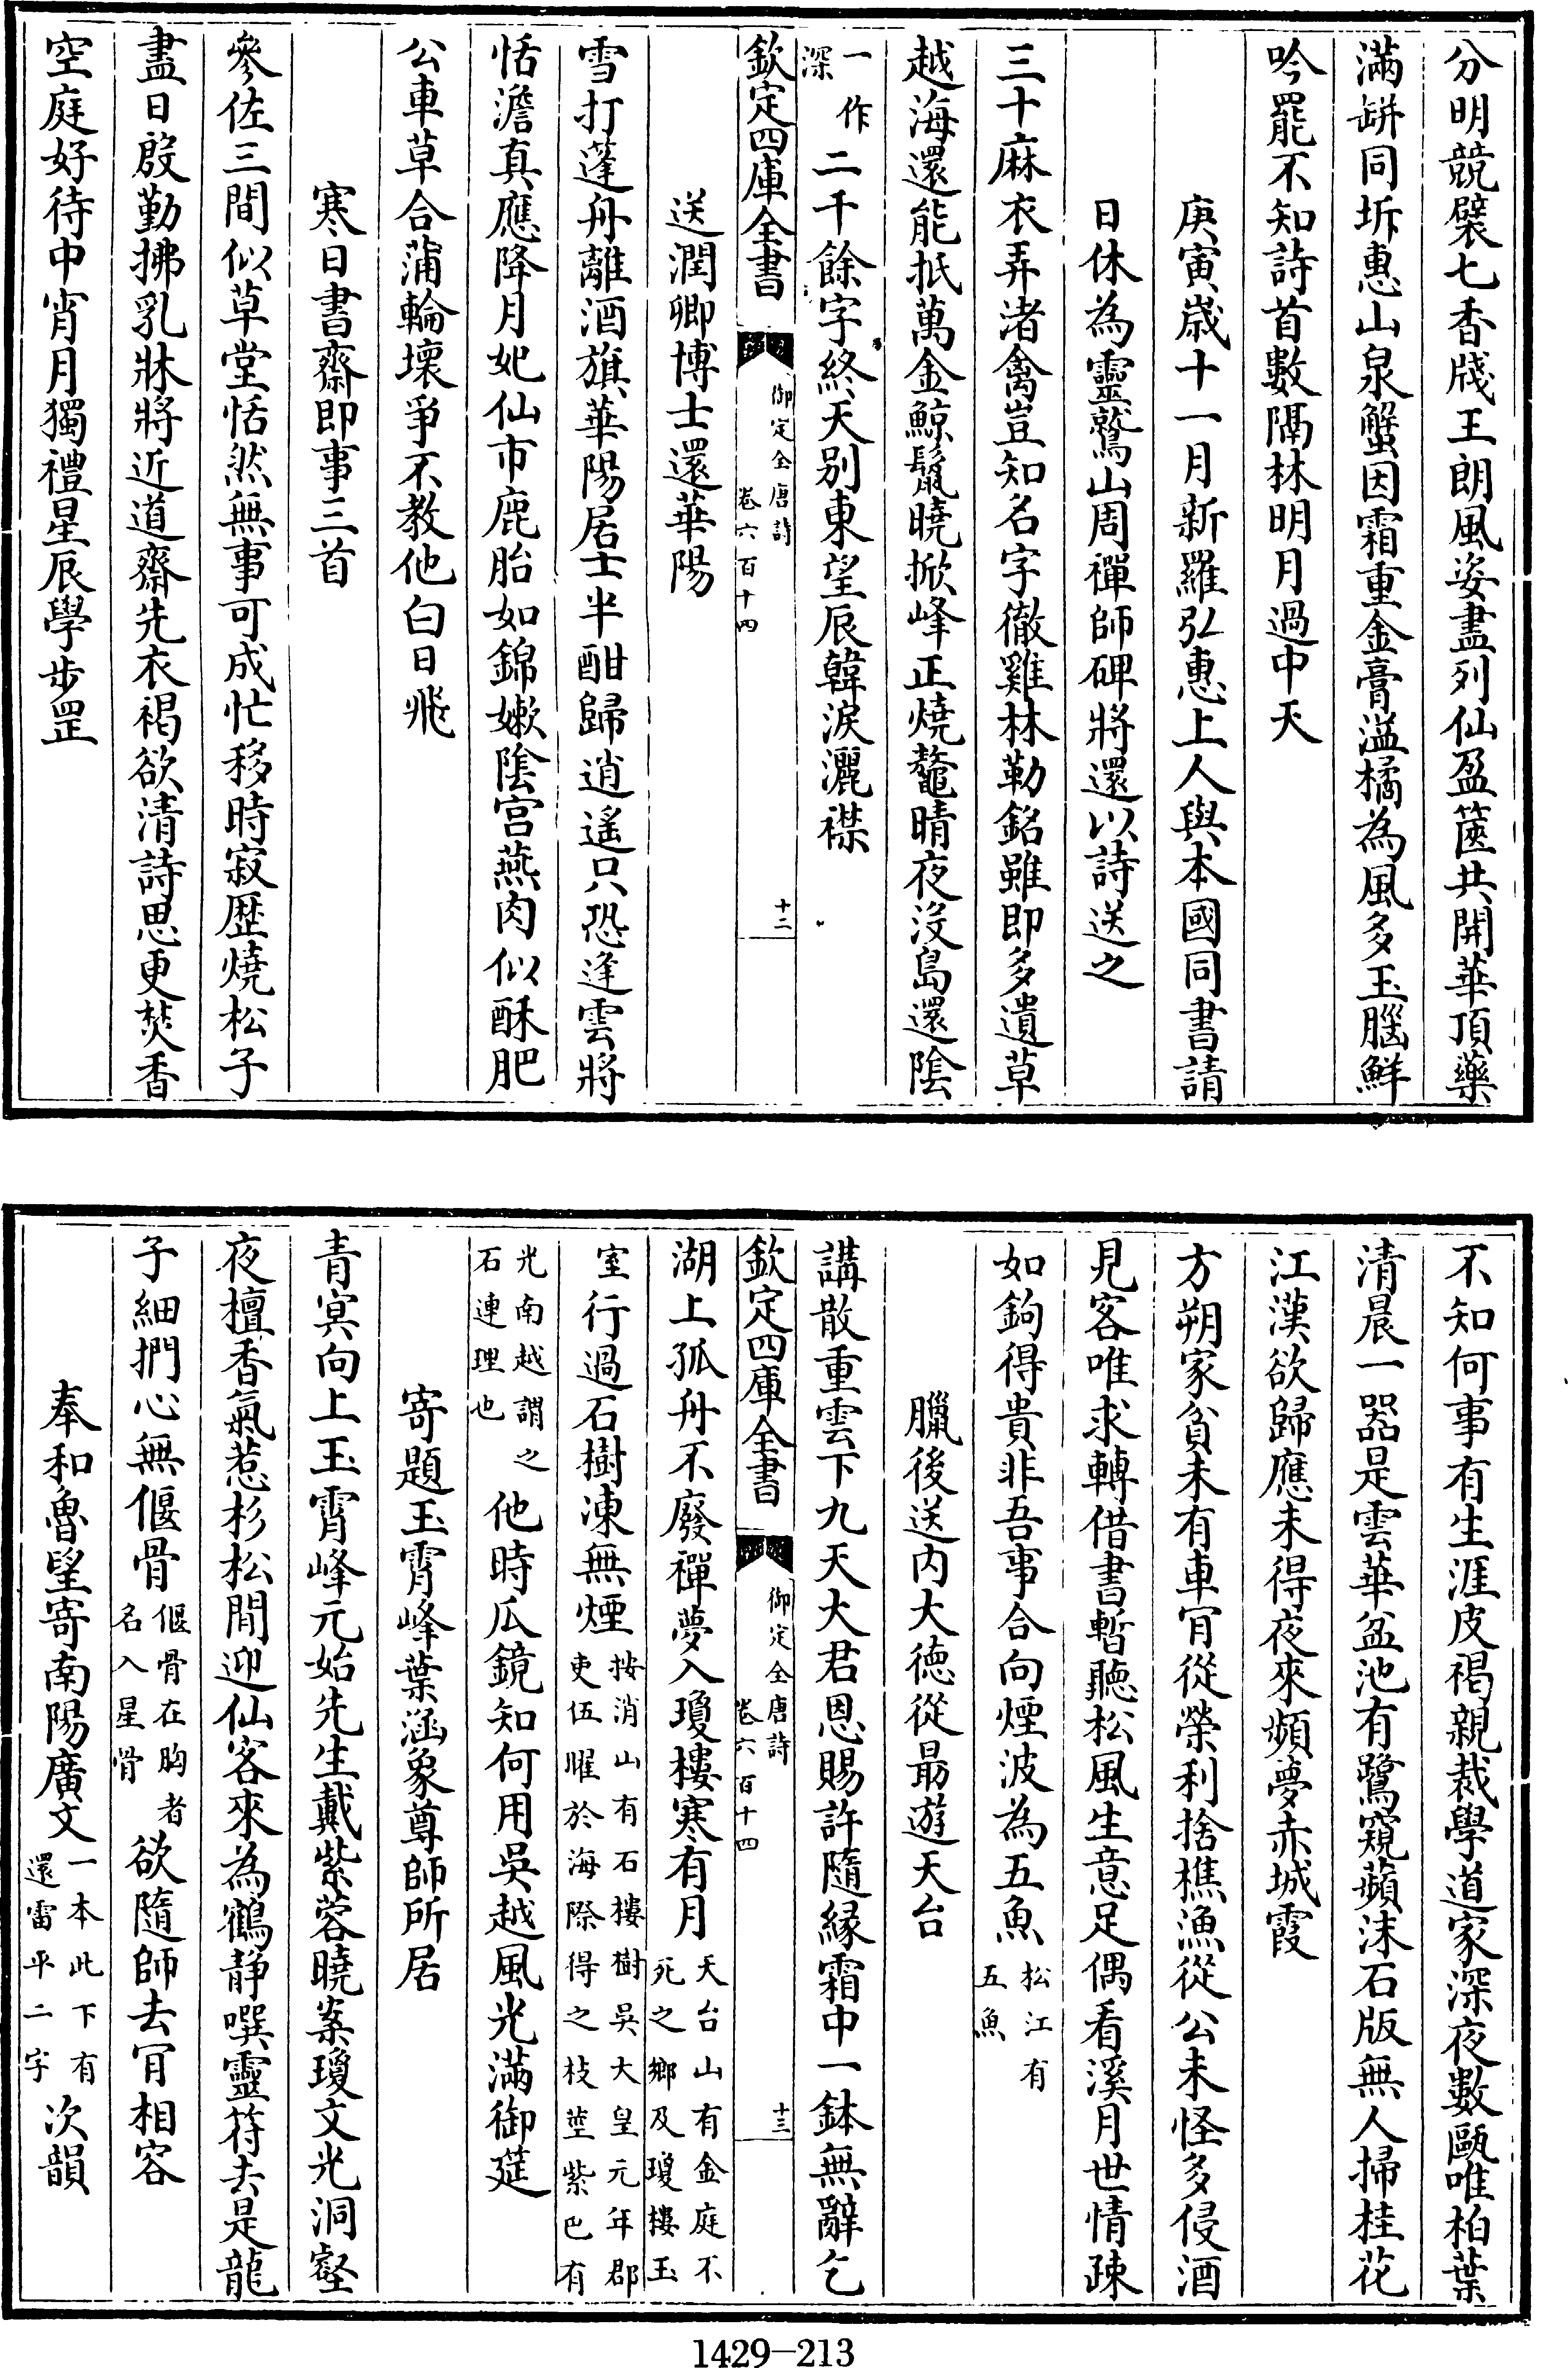 分明競襞七香牋王朗風姿盡列仙盈篋共開華頂藥
滿缾同坼惠山泉蟹因霜重金膏溢橘為風多玉腦鮮
吟罷不知詩首數隔林明月過中天
庚寅歲十一月新羅弘惠上人與本國同書請
日休為靈鷲山周禪師碑將還以詩送之
三十麻衣弄渚禽豈知名字徹雞林勒銘雖即多遺草
越海還能抵萬金鯨鬣曉掀峰正燒鼇晴夜沒島還陰
一作深二千餘字終天別東望辰韓淚灑襟
欽定四庫全書
御定全唐詩
卷六百十四
十二
送潤卿博士還華陽
雪打蓬舟離酒旗華陽居士半酣歸逍遙只恐逢雲將
恬澹真應降月妃仙市鹿胎如錦嫩陰宮燕肉似酥肥
公車草合蒲輪壞爭不教他白日飛
寒日書齋即事三首
參佐三間似草堂恬然無事可成忙移時寂歷燒松子
盡日殷勤拂乳牀將近道齋先衣褐欲清詩思更焚香
空庭好待中宵月獨禮星辰學步罡
不知何事有生涯皮褐親裁學道家深夜數甌唯柏葉
清晨一器是雲華盆池有鷺窺蘋沫石版無人掃桂花
江漢欲歸應未得夜來頻夢赤城霞
方朔家貧未有車肎從榮利捨樵漁從公未怪多侵酒
見客唯求轉借書暫聽松風生意足偶看溪月世情疎
如鉤得貴非吾事合向煙波為五魚松江有五魚
臘後送內大德從勗遊天台
講散重雲下九天大君恩賜許隨緣霜中一鉢無辭乞
欽定四庫全書
御定全唐詩
卷六百十四
十三
湖上孤舟不廢禪夢入瓊樓寒有月天台山有金庭不死之鄉及瓊樓玉
室行過石樹凍無煙按消山有石樓樹吳大皇元年郡吏伍曜於海際得之枝莖紫色有
光南越謂之石連理也他時瓜鏡知何用吳越風光滿御筵
寄題玉霄峰葉涵象尊師所居
青冥向上玉霄峰元始先生戴紫蓉曉案瓊文光洞壑
夜檀香氣惹杉松閒迎仙客來為鶴靜噀靈符去是龍
子細捫心無偃骨偃骨在胸者名入星骨欲隨師去肎相容
奉和魯望寄南陽廣文一本此下有還雷平二字次韻
1429-213